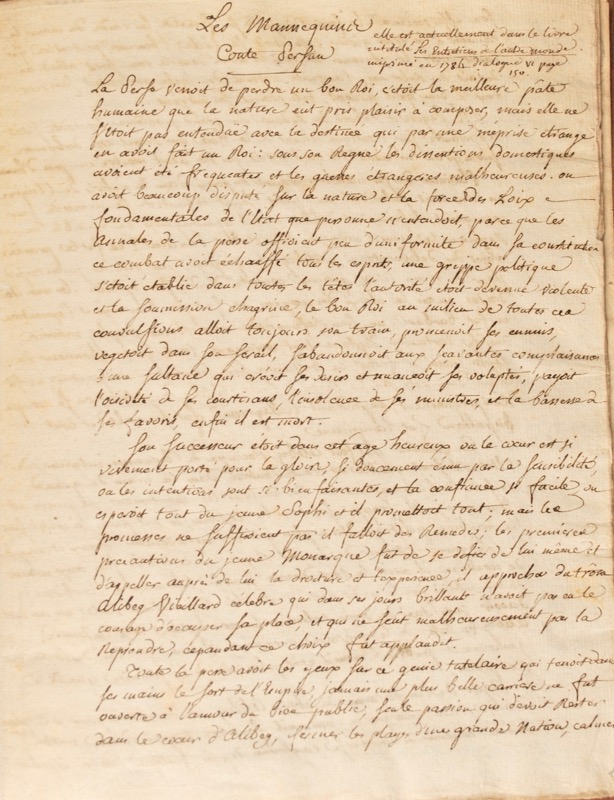 Les Mannequins
Conte Persan
elle est actuellement dans le livre
intitulé Les Entretiens de l'autre monde.
imprimé en 1784 dialogue VI page
150.
La Perse venoit de perdre un bon Roi, c'étoit la meilleure pâte
humaine que la nature eut pris plaisir à composer, mais elle ne
s'étoit pas entendue avec la destinée qui par une méprise étrange
en avoit fait un Roi: sous son Regne les dissentions domestiques
avoient été frequentes et les guerres étrangeres malheureuses. on
avoit beaucoup disputé sur la nature et la force des Loix
fondamentales de l'Etat que personne n'entendoit, parce que les
Annales de la perse offroient peu d'uniformité dans sa constitution
ce combat avoit échauffé tous les esprits, une grippe politique
s'étoit etablie dans toutes les têtes l'autorité étoit devenue violente
et la soumission chagrine, le bon Roi au milieu de toutes ces
convulsions alloit toujours son train, promenoit ses ennuis,
vegetoit dans son Serail, s'abandonnoit aux sçavantes complaisances
d'une sultane qui créoit ses desirs et nuançoit ses voluptés, payoit
l'oisiveté de ses courtisans, l'insolence de ses ministres, et la bassesse de
ses favoris, enfin il est mort.
Son successeur etoit dans cet age heureux ou le coeur est si
vivement porté pour la gloire, si doucement ému par la sensibilité,
ou les intentions sont si bienfaisantes, et la confiance si facile on
esperoit tout du jeune Sophi et il promettoit tout; mais les
promesses ne suffisoient pas il falloit des Remedes; les premieres
precautions du jeune Monarque fut de se defier de lui même et
d'appeller auprès de lui la droiture et l'experience, il approcha du trône
Alibeg Vieillard célebre qui dans ses jours brillants n'avoit pas eu le
courage d'occuper sa place, et qui ne sçut malheureusement pas la
Reprendre, cependant ce choix fut applaudit.
Toute la perse avoit les yeux sur ce genie tutelaire qui tenoit dans
ses mains le sort de l'Empire, jamais une plus belle carriere ne fut
ouverte à l'amour du bien public, seule passion qui devoit Rester
dans le coeur d'Alibeg, fermer les playes d'une grande Nation, calmer